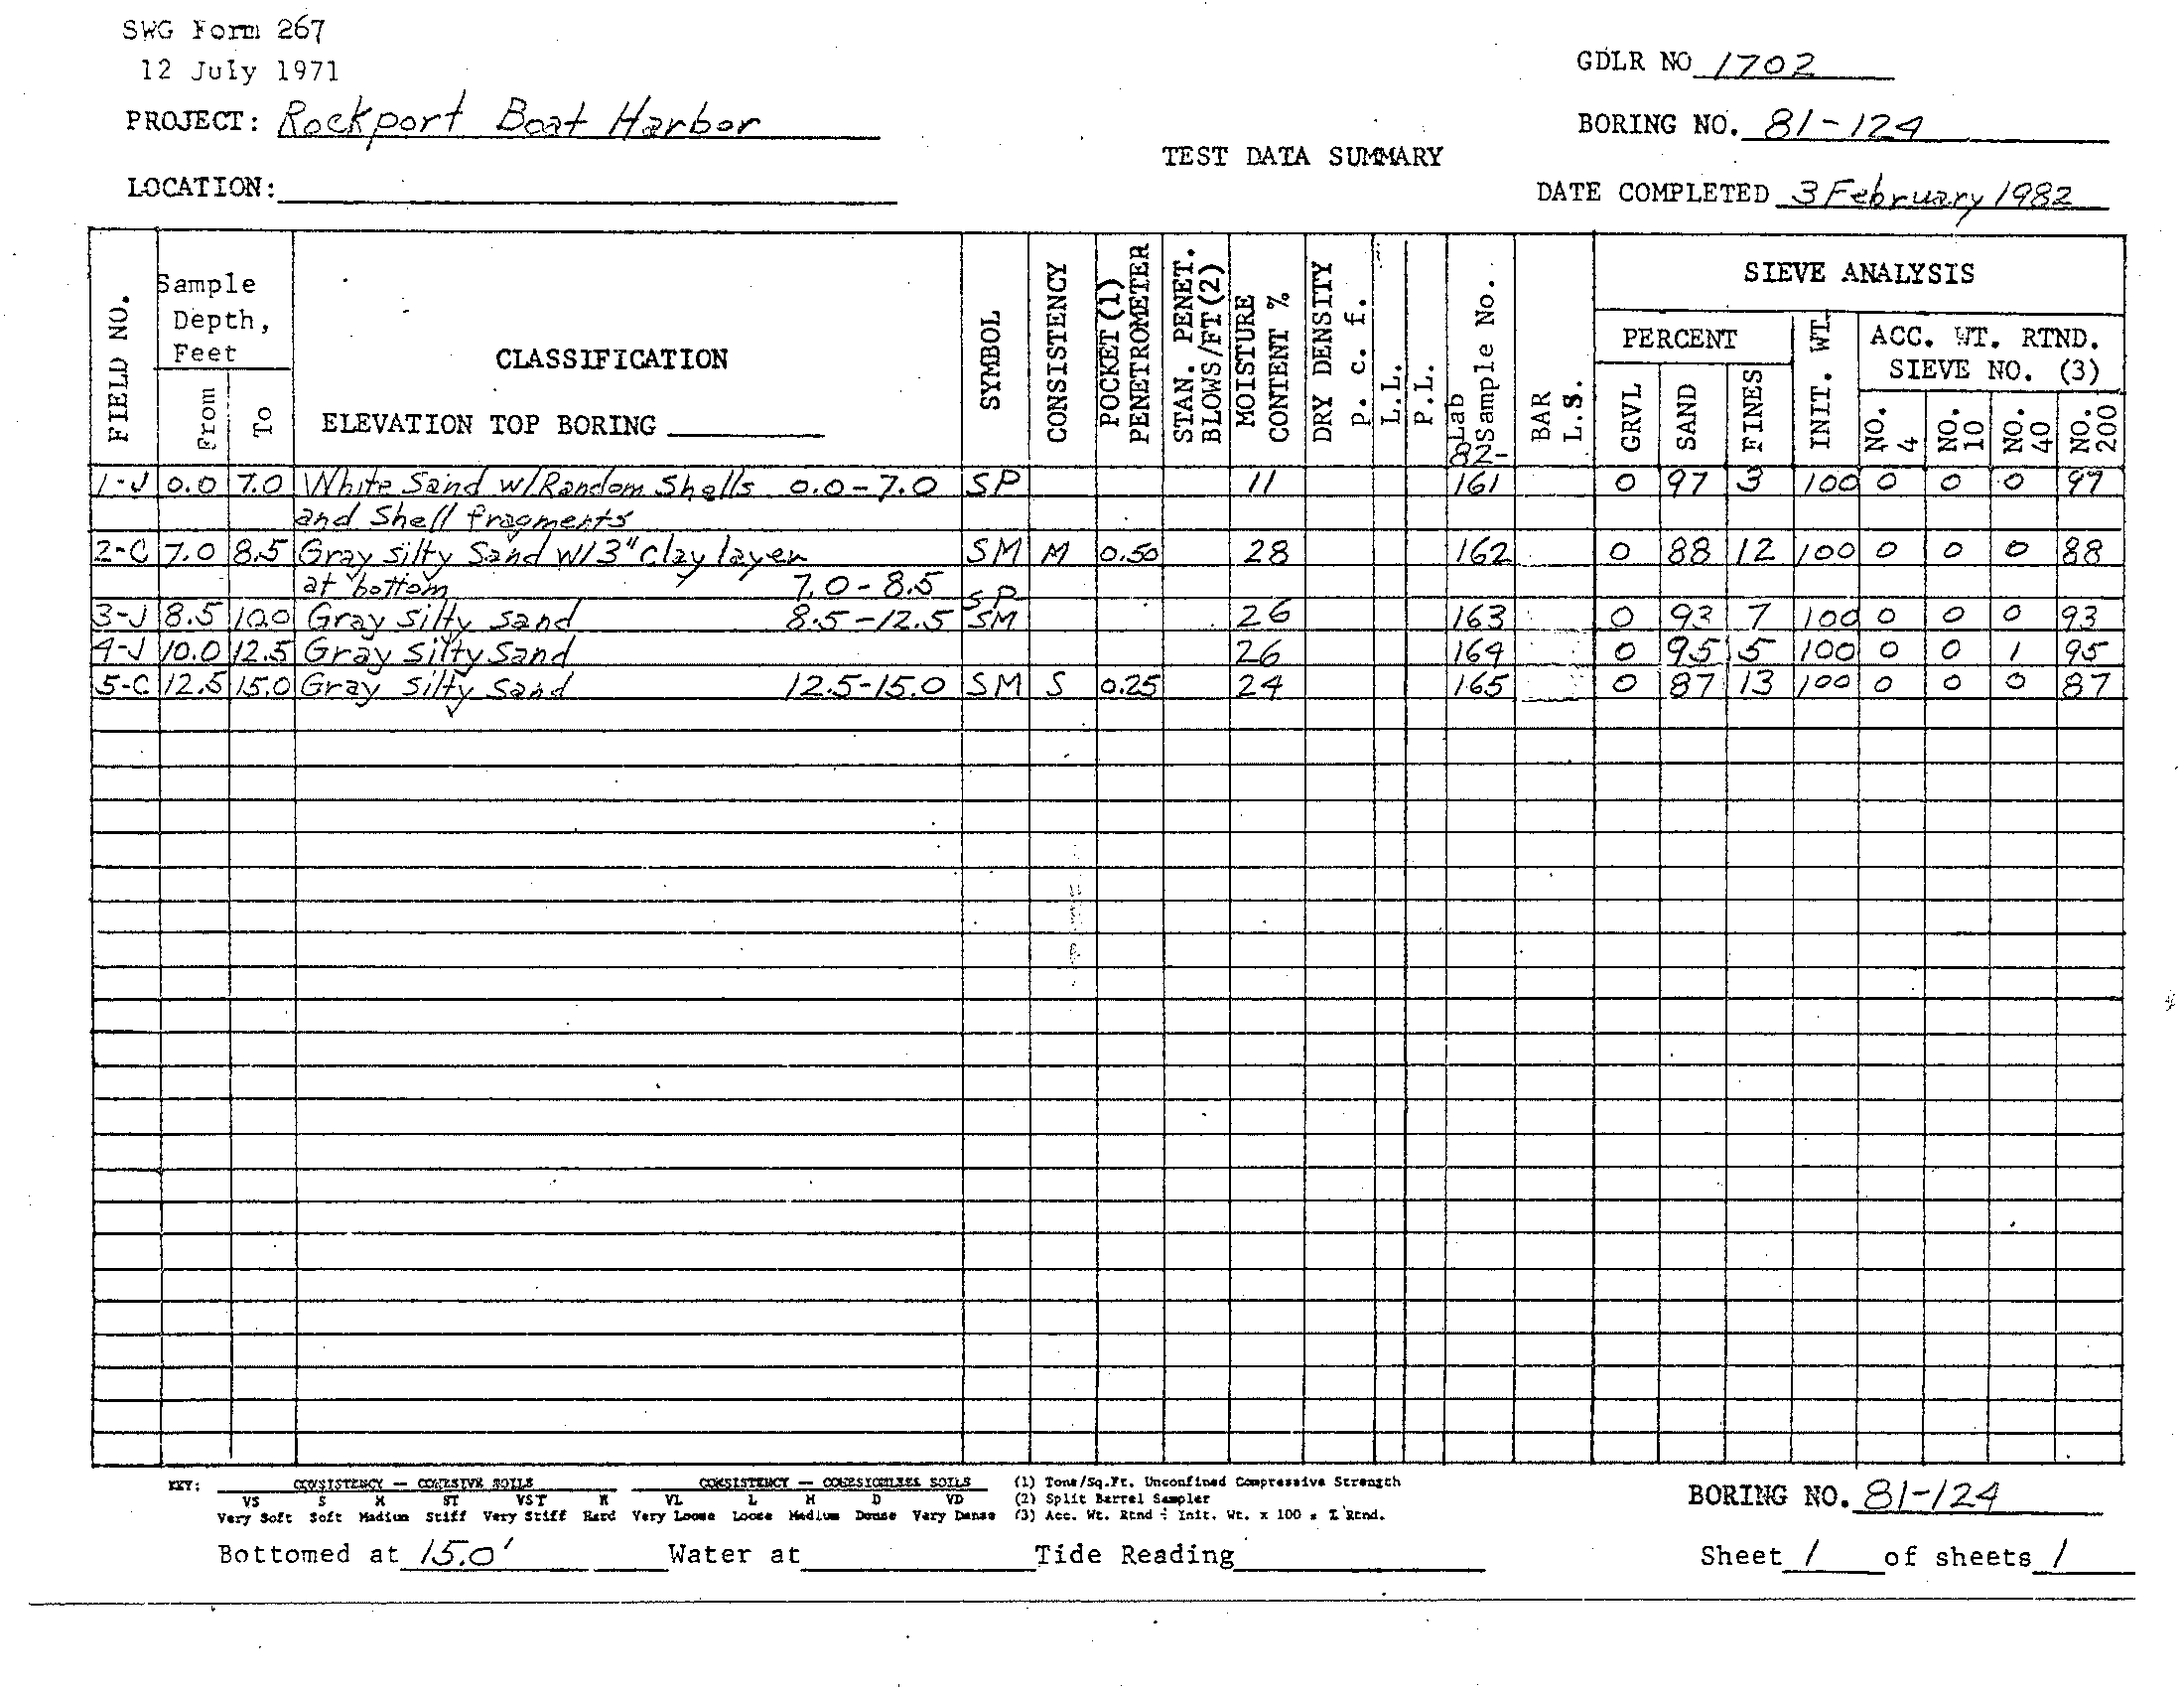 SWG Form 267
12 July 1971
GDLR NO 1702
PROJECT: Rockport Boat Harbor
BORING NO. 81-124
TEST DATA SUMMARY
LOCATION:
DATE COMPLETED 3 February 1982
FIELD NO.
Sample Depth, Feet
From
To
CLASSIFICATION
ELEVATION TOP BORING
SYMBOL
CONSISTENCY
POCKET (1) PENETROMETER
STAN. PENET. BLOWS/FT (2)
MOISTURE CONTENT %
DRY DENSITY p. c. f.
L.L.
P.L.
Lab Sample No.
82-
BAR L.S.
SIEVE ANALYSIS
PERCENT
GRVL
SAND
FINES
INIT. WT.
ACC. WT. RTND.
SIEVE NO. (3)
NO. 4
NO. 10
NO. 40
NO. 200
1-J 0.0 7.0 White Sand w/Random Shells 0.0-7.0 SP 11 161 0 97 3 100 0 0 0 97
and Shell fragments
2-C 7.0 8.5 Gray silty Sand w/3" clay layer SM M 0.50 28 162 0 88 12 100 0 0 0 88
at bottom 7.0-8.5
SP
3-J 8.5 10.0 Gray silty sand 8.5-12.5 SM 26 163 0 93 7 100 0 0 0 93
4-J 10.0 12.5 Gray silty Sand 26 164 0 95 5 100 0 0 1 95
5-C 12.5 15.0 Gray silty sand 12.5-15.0 SM S 0.25 24 165 0 87 13 100 0 0 0 87
KEY: CONSISTENCY — COHESIVE SOILS CONSISTENCY — COHESIONLESS SOILS (1) Tons/Sq.Ft. Unconfined Compressive Strength
VS S M ST VST H VL L M D VD (2) Split Barrel Sampler
Very Soft Soft Medium Stiff Very Stiff Hard Very Loose Loose Medium Dense Very Dense (3) Acc. Wt. Rtnd ÷ Init. Wt. x 100 = % Rtnd.
BORING NO. 81-124
Bottomed at 15.0' Water at Tide Reading Sheet 1 of sheets 1